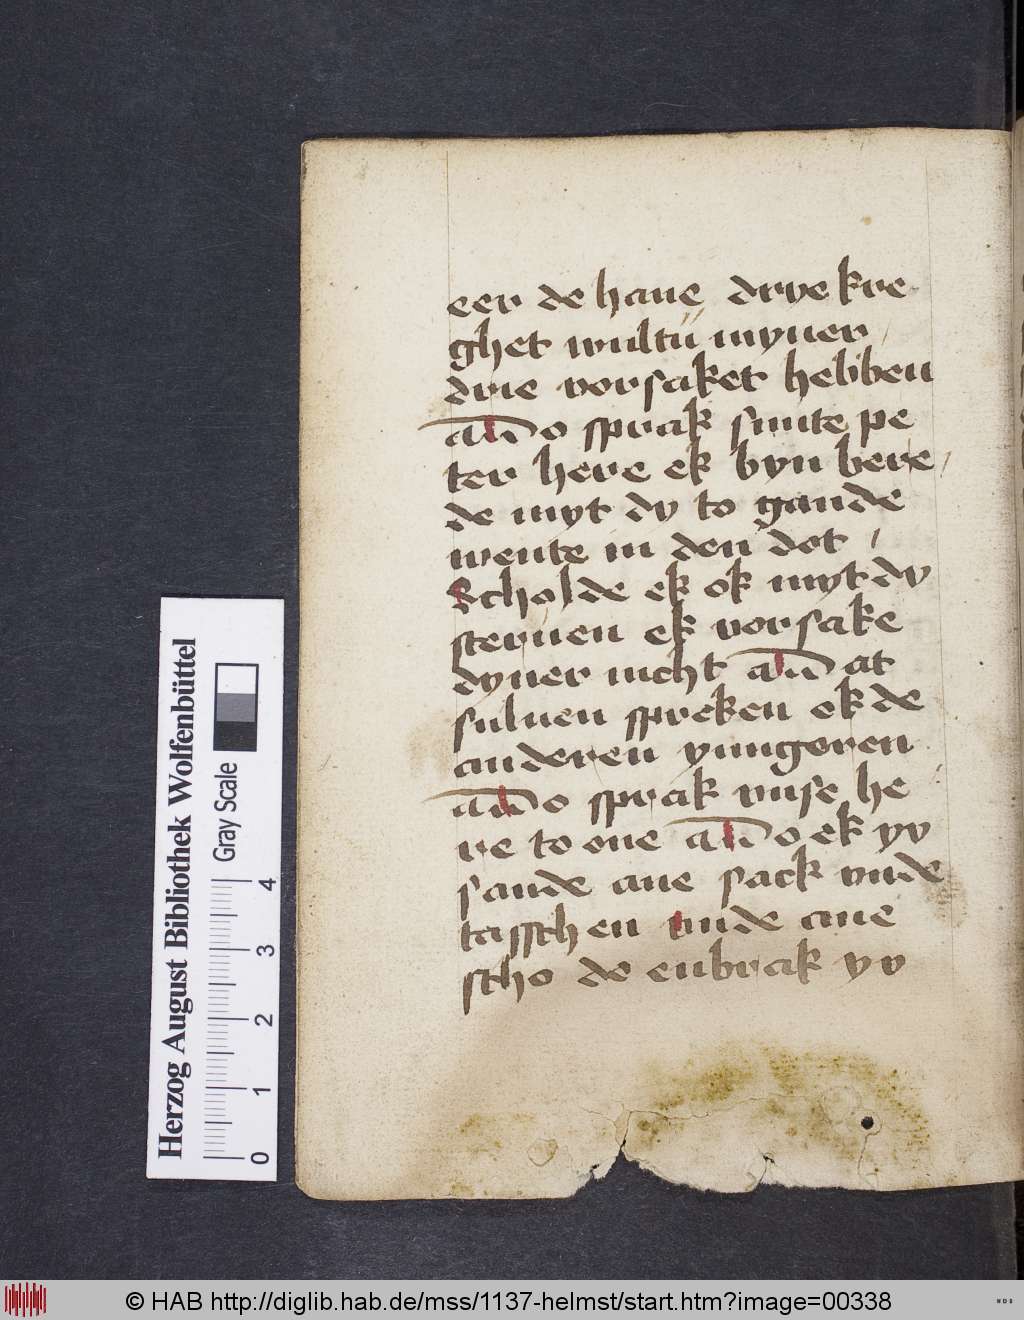 eer de hane drye kre
ghet wultu myner
drie vorsaket hebben
an̄o sprak sunte pe
ter here ek byn bere
de myt dy to gande
wente in den dot
Scholde ek ok myt dy
steruen ek vorsake
dyner nicht an̄ at
suluen spreken ok de
anderen yungeren
an̄o sprak vnse he
re to one an̄o ek yv
sande ane sack vnde
tasschen vnde ane
scho de enbrak yv
Herzog August Bibliothek Wolfenbüttel
Gray Scale
0 1 2 3 4
© HAB http://diglib.hab.de/mss/1137-helmst/start.htm?image=00338